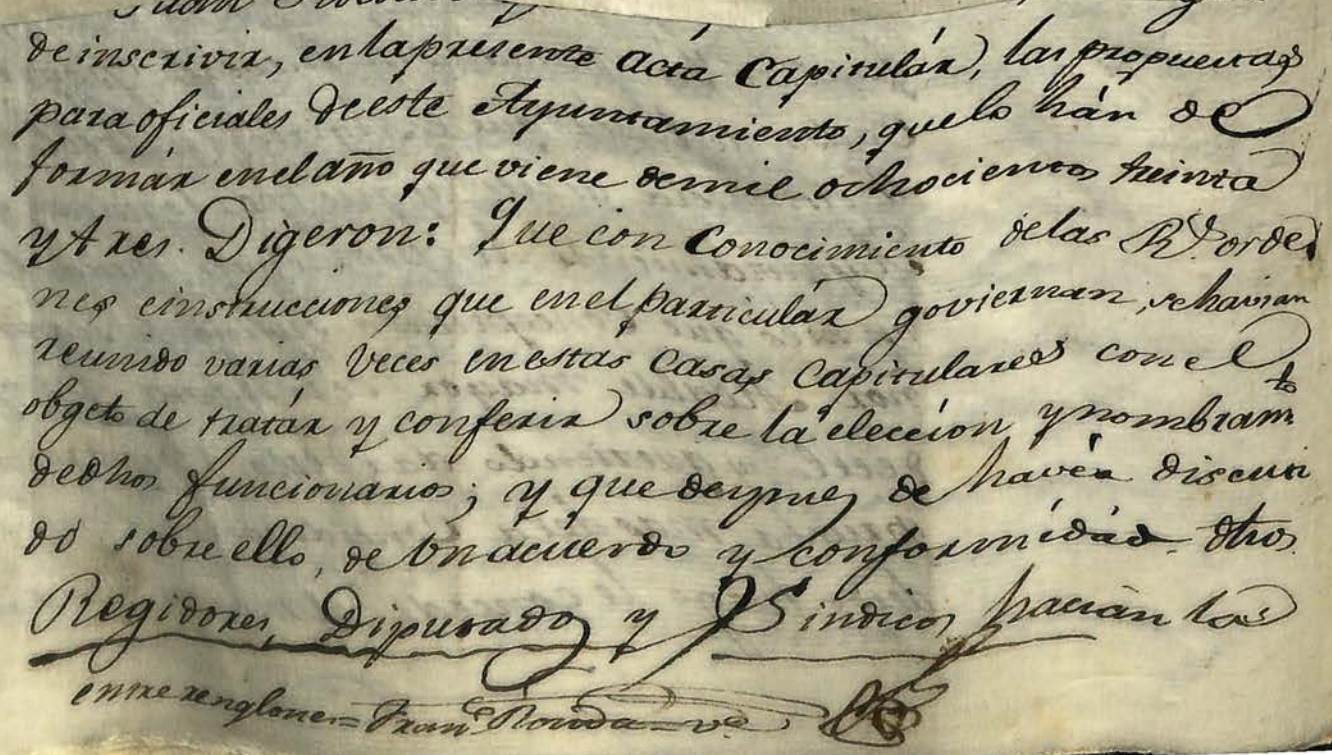 de inscrivir, en la presente acta Capitulár, las propuestas
para oficiales de este Ayuntamiento, que lo hán de
formár en el año que viene de mil ochocientos treinta
y tres. Digeron: Que con Conocimiento de las Rs. orde
nes e instrucciones que en el particulár goviernan, se havian
reunido varias Veces en estas Casas Capitulares con el
obgeto de tratár y conferir sobre la elección y nombramto
de dhos funcionarios; y que despues de havér discuti
do sobre ello, de Un acuerdo y conformidád dhos
Regidores, Diputados y Sindicos hacian las
entre renglones = Franco Ronda = ve